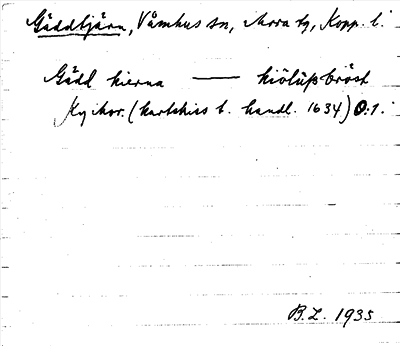 Gäddtjärn, Våmhus sn, Mora tg, Kopp. l.
Gädd kierna — kiölüpbröst
Ky Mor. (kartskiss t. handl. 1634) O:1.
B.L. 1935